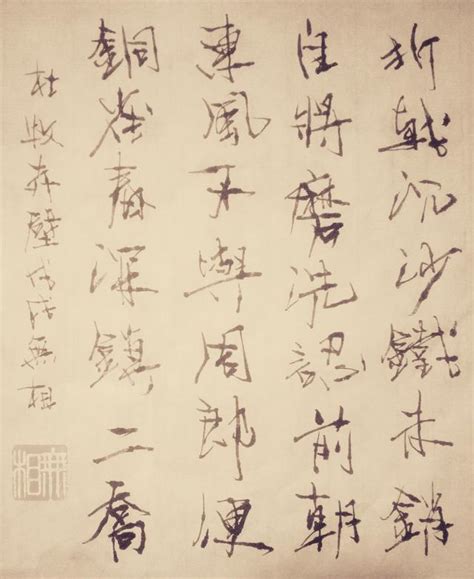 折戟沉沙鐵未銷
自將磨洗認前朝
東風不與周郎便
銅雀春深鎖二喬
杜牧赤壁戊戌無相
無相